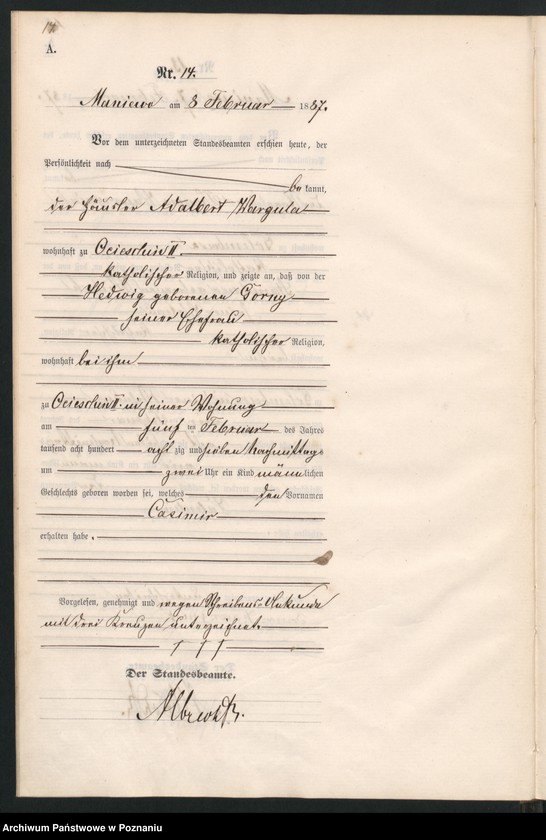 A.
Nr. 14.
Maniewo am 8 Februar 1887.
Vor dem unterzeichneten Standesbeamten erschien heute, der
Persönlichkeit nach
bekannt,
der Häusler Adalbert Wargula
wohnhaft zu Ocieschin II,
katholischer Religion, und zeigte an, daß von der
Hedwig geborenen Gorny
seiner Ehefrau
katholischer Religion,
wohnhaft bei ihm
zu Ocieschin II. in seiner Wohnung
am fünf ten Februar des Jahres
tausend acht hundert acht zig und sieben Nachmittags
um zwei Uhr ein Kind männlichen
Geschlechts geboren worden sei, welches den Vornamen
Casimir
erhalten habe.
Vorgelesen, genehmigt und wegen Schreibens-Unkunde
mit drei Kreuzen unterzeichnet.
† † †
Der Standesbeamte.
Archiwum Państwowe w Poznaniu